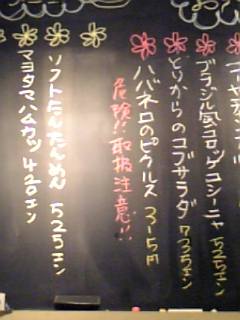 ブラジル風コロッケコシーニャ 525エン
とりからのコブサラダ 735エン
ハバネロのピクルス 315円
危険!! 取扱注意!!
ソフトたんたんめん 525エン
マヨタマハムカツ 420エン